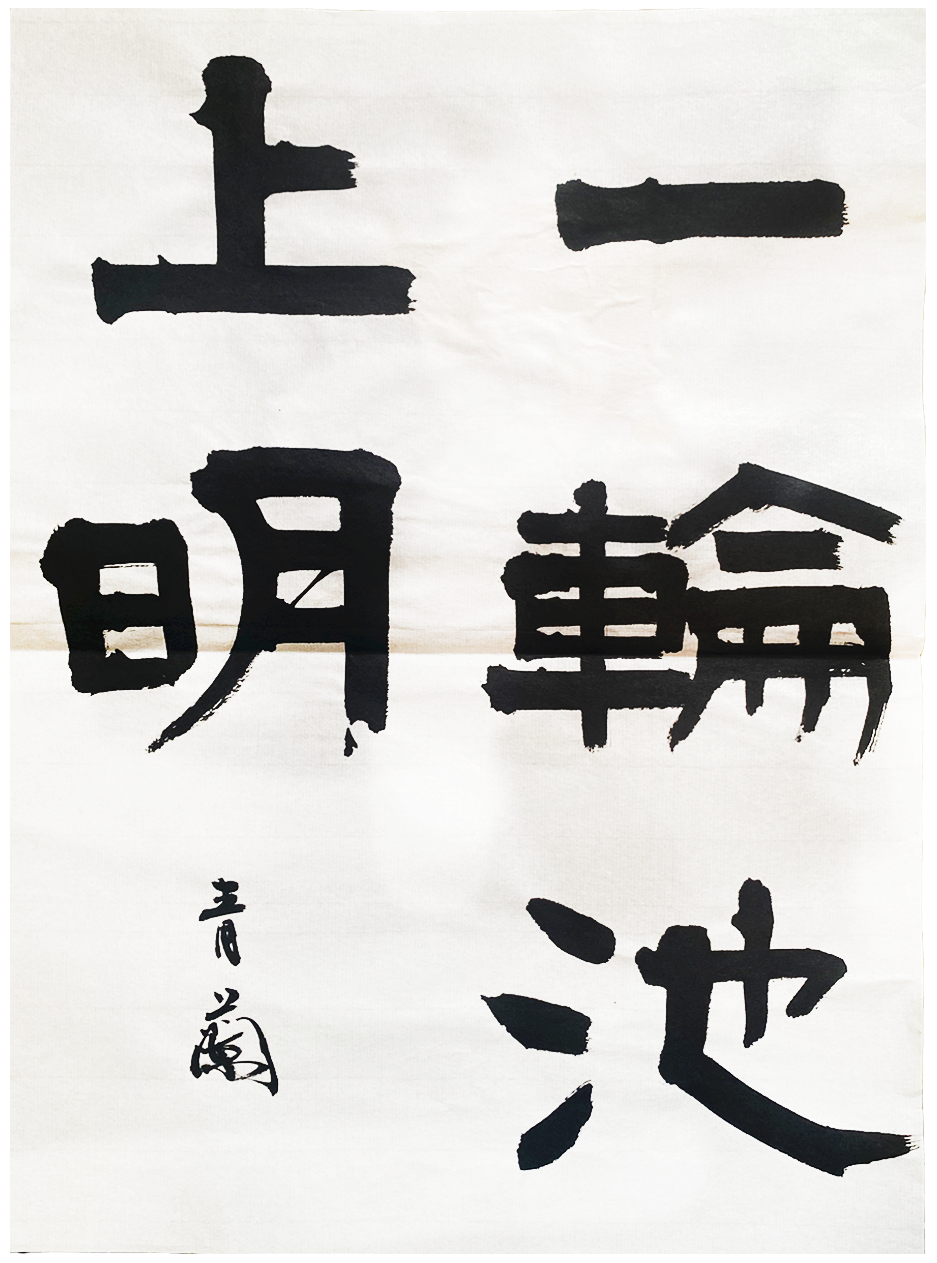 一輪池
上明
青蘭